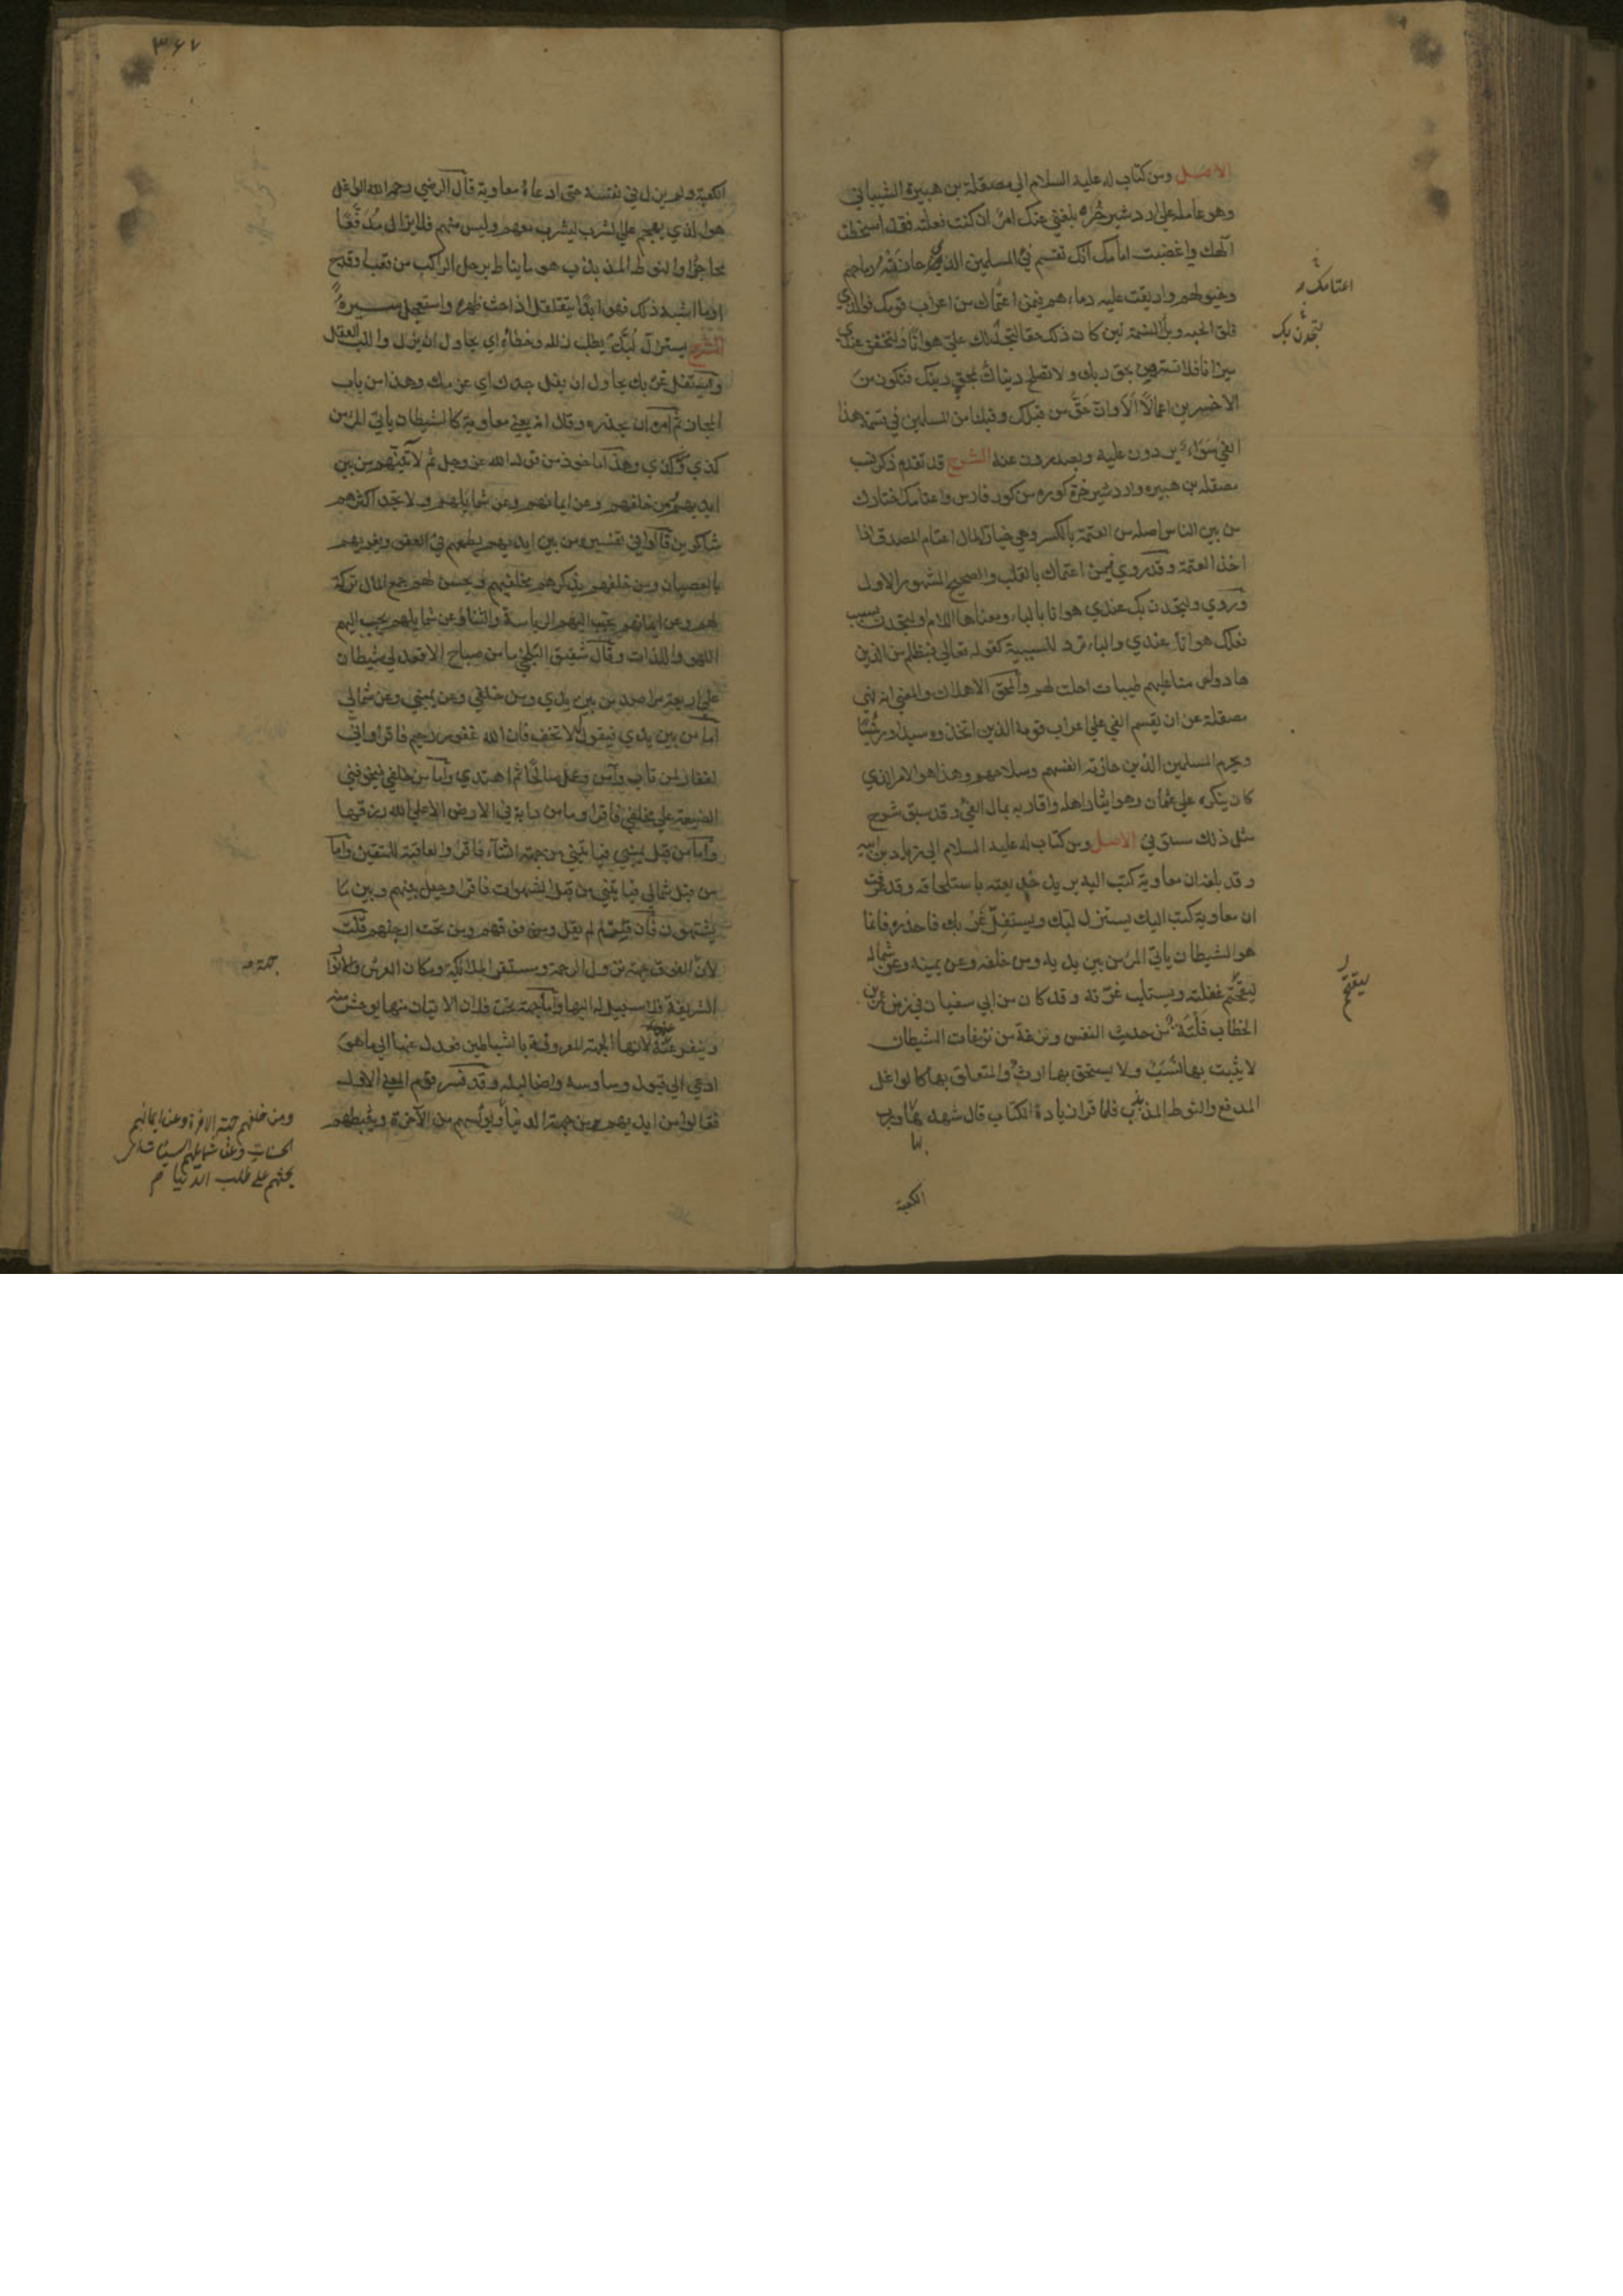 الاصل ومن كتاب له عليه السلام الى مصقلة بن هبيرة الشيباني
وهو عامله على اردشير خره بلغني عنك امر ان كنت فعلته فقد اسخطت
الهك واغضبت امامك انك تقسم فئ المسلمين الذي حازته رماحهم
وخيولهم واريقت عليه دماءهم فيمن اعتماك من اعراب قومك فوالذي
فلق الحبه وبرأ النسمة لئن كان ذلك حقا لتجدن لك علي هوانا ولتخفن عندي
ميزانا فلا تستهين بحق ربك ولا تصلح دنياك بمحق دينك فتكون من
الاخسرين اعمالا الا وان حق من قبلك وقبلنا من المسلمين في قسمة هذا
الفئ سواء يردون عليه ويصدرون عنه الشرح قد تقدم ذكر نسب
مصقله بن هبيره واردشير خرة كوره من كور فارس واعتامك اختارك
من بين الناس اصله من العتمة بالكسر وهي خيار المال اعتام المصدق اذا
اخذ العتمة وقد روي فيمن اعتماك بالقلب والصحيح المشهور الاول
وروي ولتجدن بك عندي هوانا بالباء ومعناها اللام ولتجدن بسبب
فعلك هوانك عندي والباء ترد للسببية كقوله تعالى فبظلم من الذين
هادوا حرمنا عليهم طيبات احلت لهم والمحق الاهلاك والمعنى انه نهى
مصقلة عن ان يقسم الفئ على اعراب قومه الذين اتخذوه سيدا ورئيسا
ويحرم المسلمين الذين حازته انفسهم وسلاحهم وهذا هو الامر الذي
كان ينكره على عثمان وهو ايثار اهله واقاربه بمال الفئ وقد سبق شرح
مثل ذلك مستوفى الاصل ومن كتاب له عليه السلام الى زياد بن ابيه
وقد بلغه ان معاوية كتب اليه يريد خديعته باستلحاقه وقد عرفت
ان معاوية كتب اليك يستزل لبك ويستفل غربك فاحذره فانما
هو الشيطان ياتي المرء من بين يديه ومن خلفه وعن يمينه وعن شماله
ليقتحم غفلته ويستلب غرته وقد كان من ابي سفيان في زمن عمر بن
الخطاب فلتة من حديث النفس ونزغة من نزغات الشيطان
لا يثبت بها نسب ولا يستحق بها ارث والمتعلق بها كالواغل
المدفع والنوط المذبذب فلما قرا زيادة الكتاب قال شهد بها ورب
الكعبة
اعتامك
لتجدن بك
ليقتحم
٣٦٧
الكعبة ولم يزل في نفسه حتى ادعاه معاوية قال الرضي رحمه الله الواغل
هو الذي يهجم على الشرب ليشرب معهم وليس منهم فلا يزال مدفعا
محاجزا والنوط المذبذب هو ما يناط برحل الراكب من قعب او قدح
او ما اشبه ذلك فهو ابدا يتقلقل اذا حث ظهره واستعجل سيره
الشرح يستزل لبك يطلب زلله وخطاءه اي يحاول ان يزل واللب العقل
ويستفل غربك يحاول ان يفل حدك اي عزمك وهذا من باب
المجاز ثم امره ان يحذره وقال انه يعني معاوية كالشيطان ياتي المرء من
كذي وكذي وهذا ماخوذ من قوله الله عز وجل ثم لاتينهم من بين
ايديهم ومن خلفهم وعن ايمانهم وعن شمايلهم ولا تجد اكثرهم
شاكرين قالوا في تفسيره من بين ايديهم يطمعهم في العفو ويغريهم
بالعصيان ومن خلفهم يذكرهم مخلفيهم ويحسن لهم جمع المال وتركه
لهم وعن ايمانهم يحبب اليهم الرياسة والثناء وعن شمايلهم يحبب اليهم
اللهو واللذات وقال شقيق البلخي ما من صباح الا قعد لي شيطان
على اربعة مراصد من بين يدي ومن خلفي وعن يميني وعن شمالي
اما من بين يدي فيقول لا تخف فان الله غفور رحيم فاقرا واني
لغفار لمن تاب وآمن وعمل صالحا ثم اهتدى واما من خلفي فيخوفني
الضيعة على مخلفي فاقرا وما من دابة في الارض الا على الله رزقها
واما من قبل يميني فياتيني من جهة الثناء فاقرا والعاقبة للمتقين واما
من قبل شمالي فياتيني من قبل الشهوات فاقرا وحيل بينهم وبين ما
يشتهون فان قلت لم لم يقل ومن فوقهم ومن تحت ارجلهم قلت
لان الفوق جهة نزول الرحمة ومستقر الملائكة ومكان العرش والانوار
الشريفة فلا سبيل له اليها واما جهة تحت فلان الاتيان منها يوحش منه
وينفر عنه لانها الجهة المعروفة بالشياطين فعدل عنها الى ما هو
ادعى الى قبول وساوسه واضاليله وقد فسر قوم المعنى الاول
فقالوا من ايديهم من جهة الدنيا ويؤيسهم من الآخرة ويثبطهم
جهة
ومن خلفهم جهة الاخرة وعن ايمانهم
الحسنات وعن شمايلهم السيئات
يحثهم على طلب الدنيا